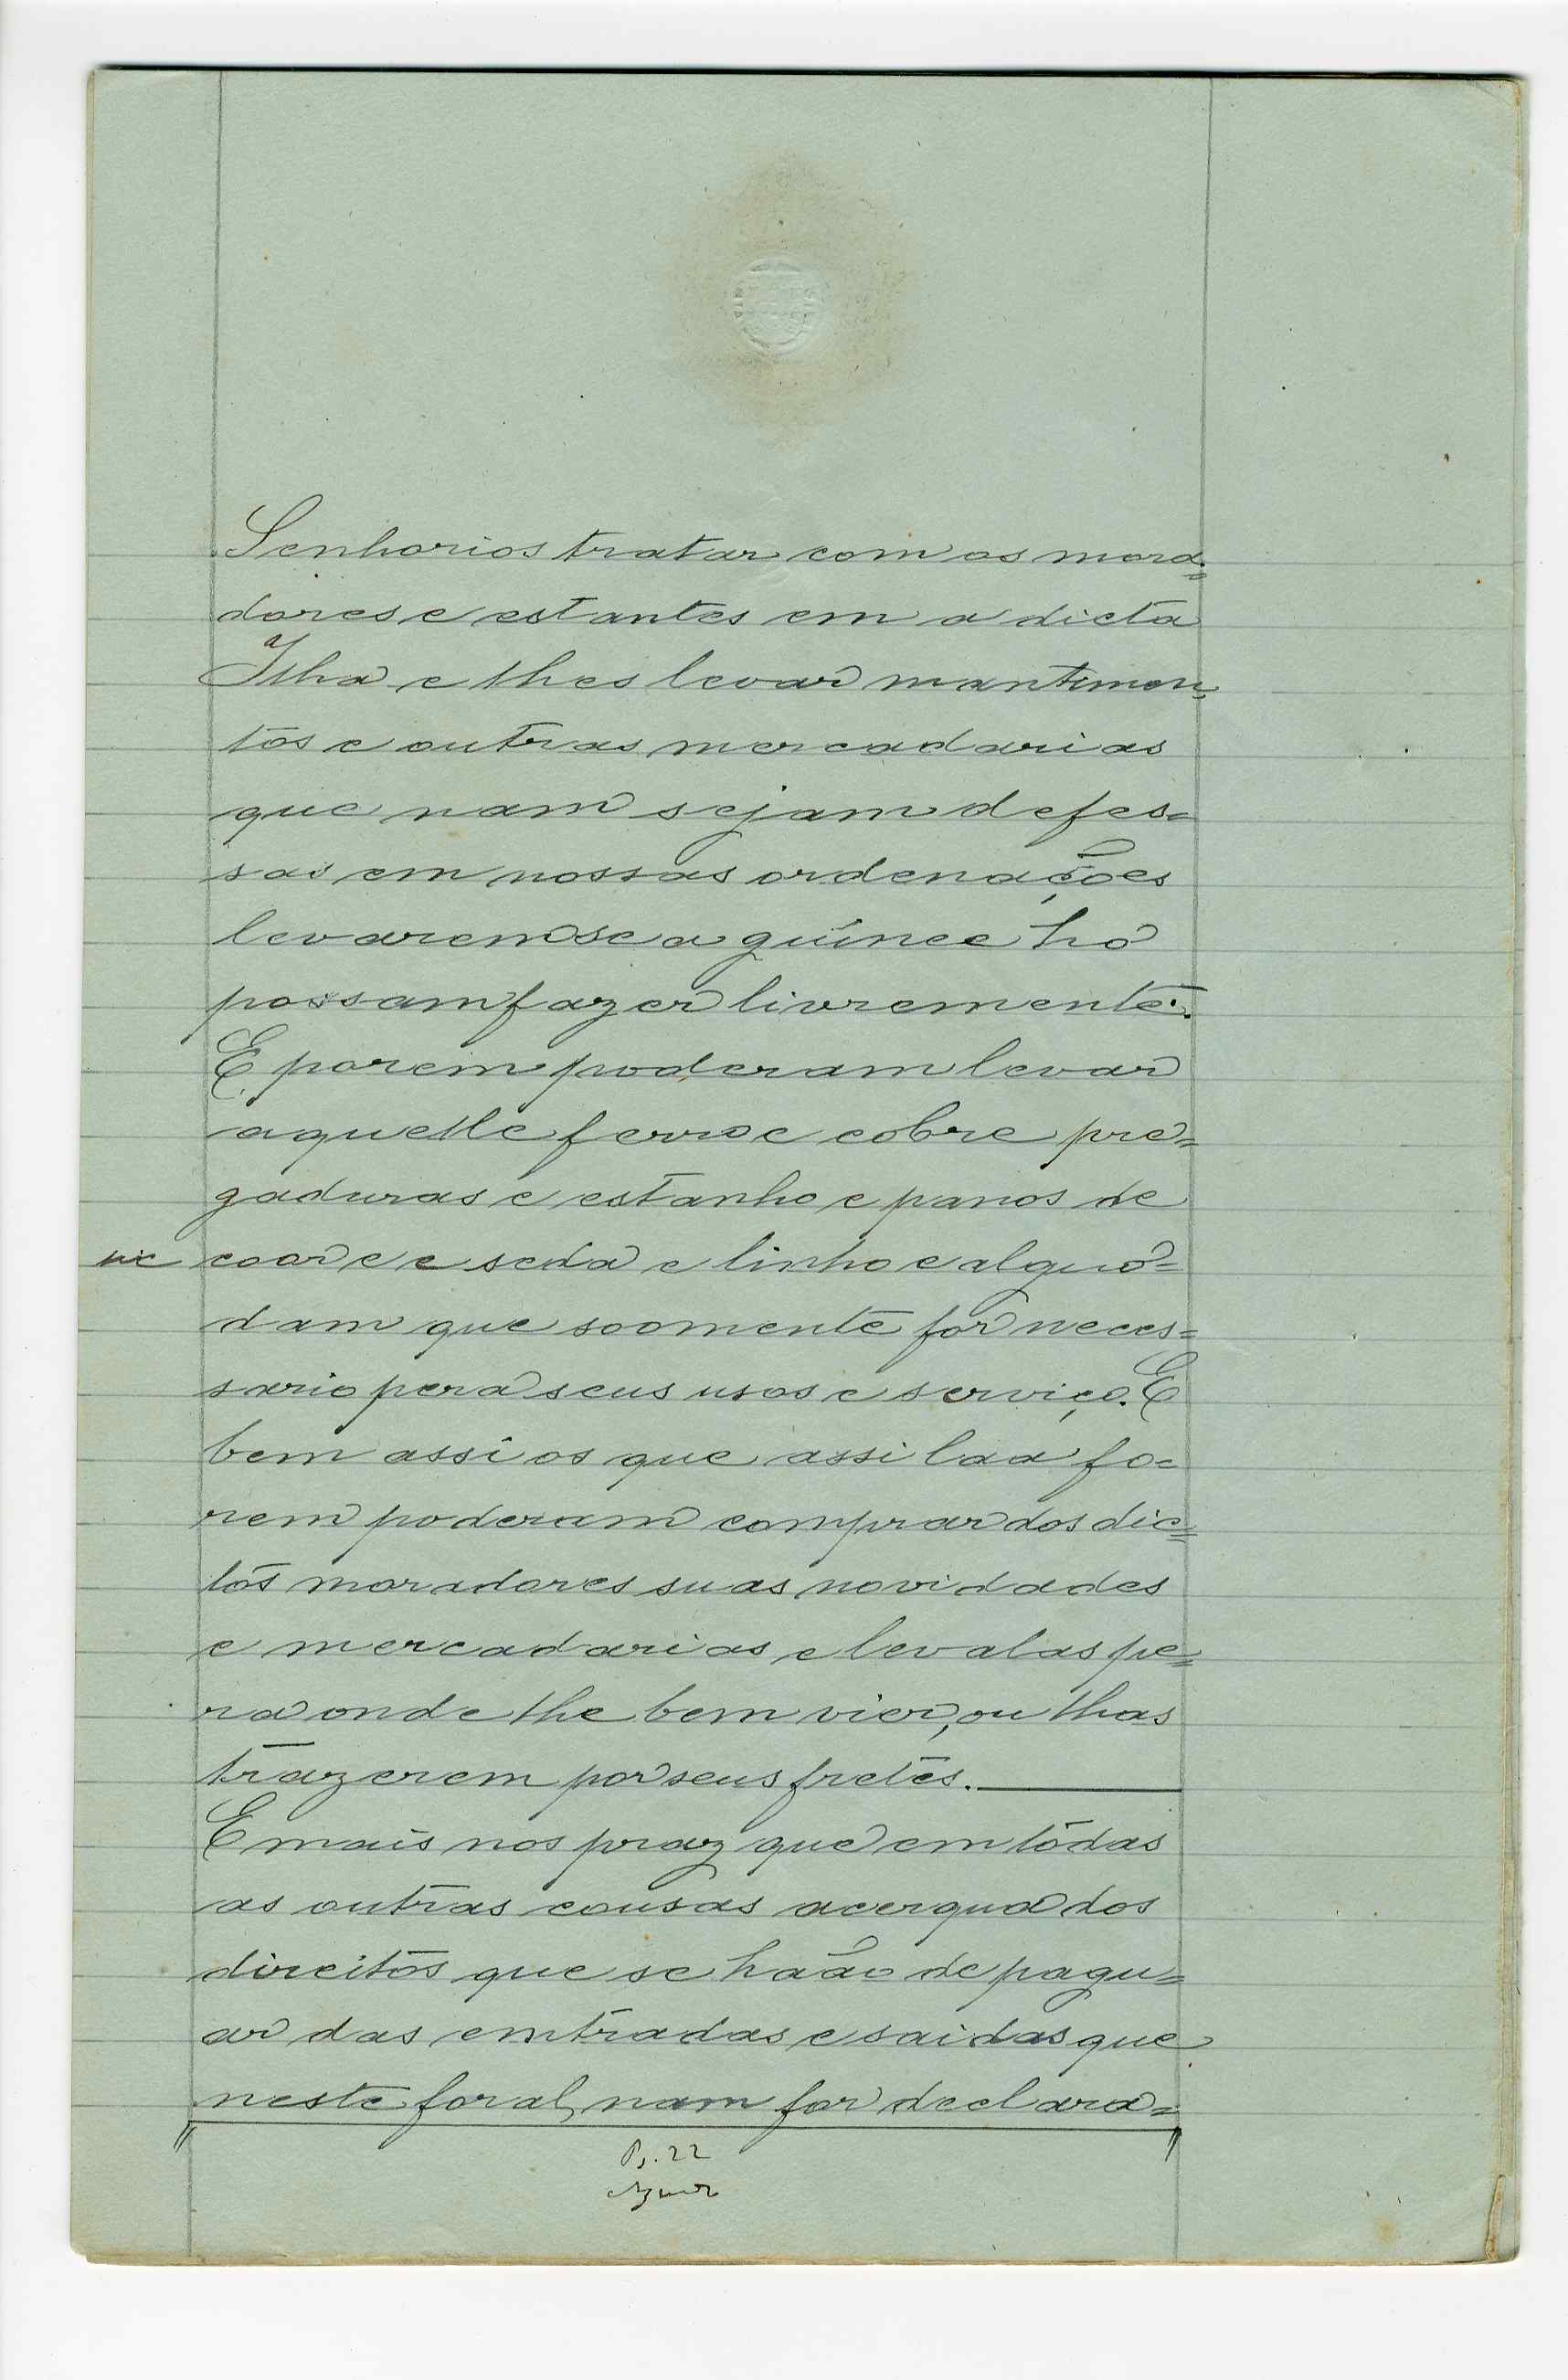 Senhorios tratar com os mora=
dores e estantes em a dicta
Ilha e lhes levar mantimen=
tos e outras mercadarias
que nam sejam defes=
sas em nossas ordenações
levaremse a guinee ho
possam fazer livremente.
E porem poderam levar
aquelle ferro e cobre pre=
gaduras e estanho e panos de
sic coor e e seda e linho e alguo=
dam que soomente for neces=
sario pera seus usos e serviço. E
bem assi os que assi laa fo=
rem poderam comprar dos dic=
tos moradores suas novidades
e mercadarias e levalas pe=
ra onde lhe bem vier, ou lhas
trazerem por seus fretes.
E mais nos praz que em todas
as outras cousas acerqua dos
direitos que se haão de pagu=
ar das emtradas e saidas que
neste foral nam for declara=
P. 22